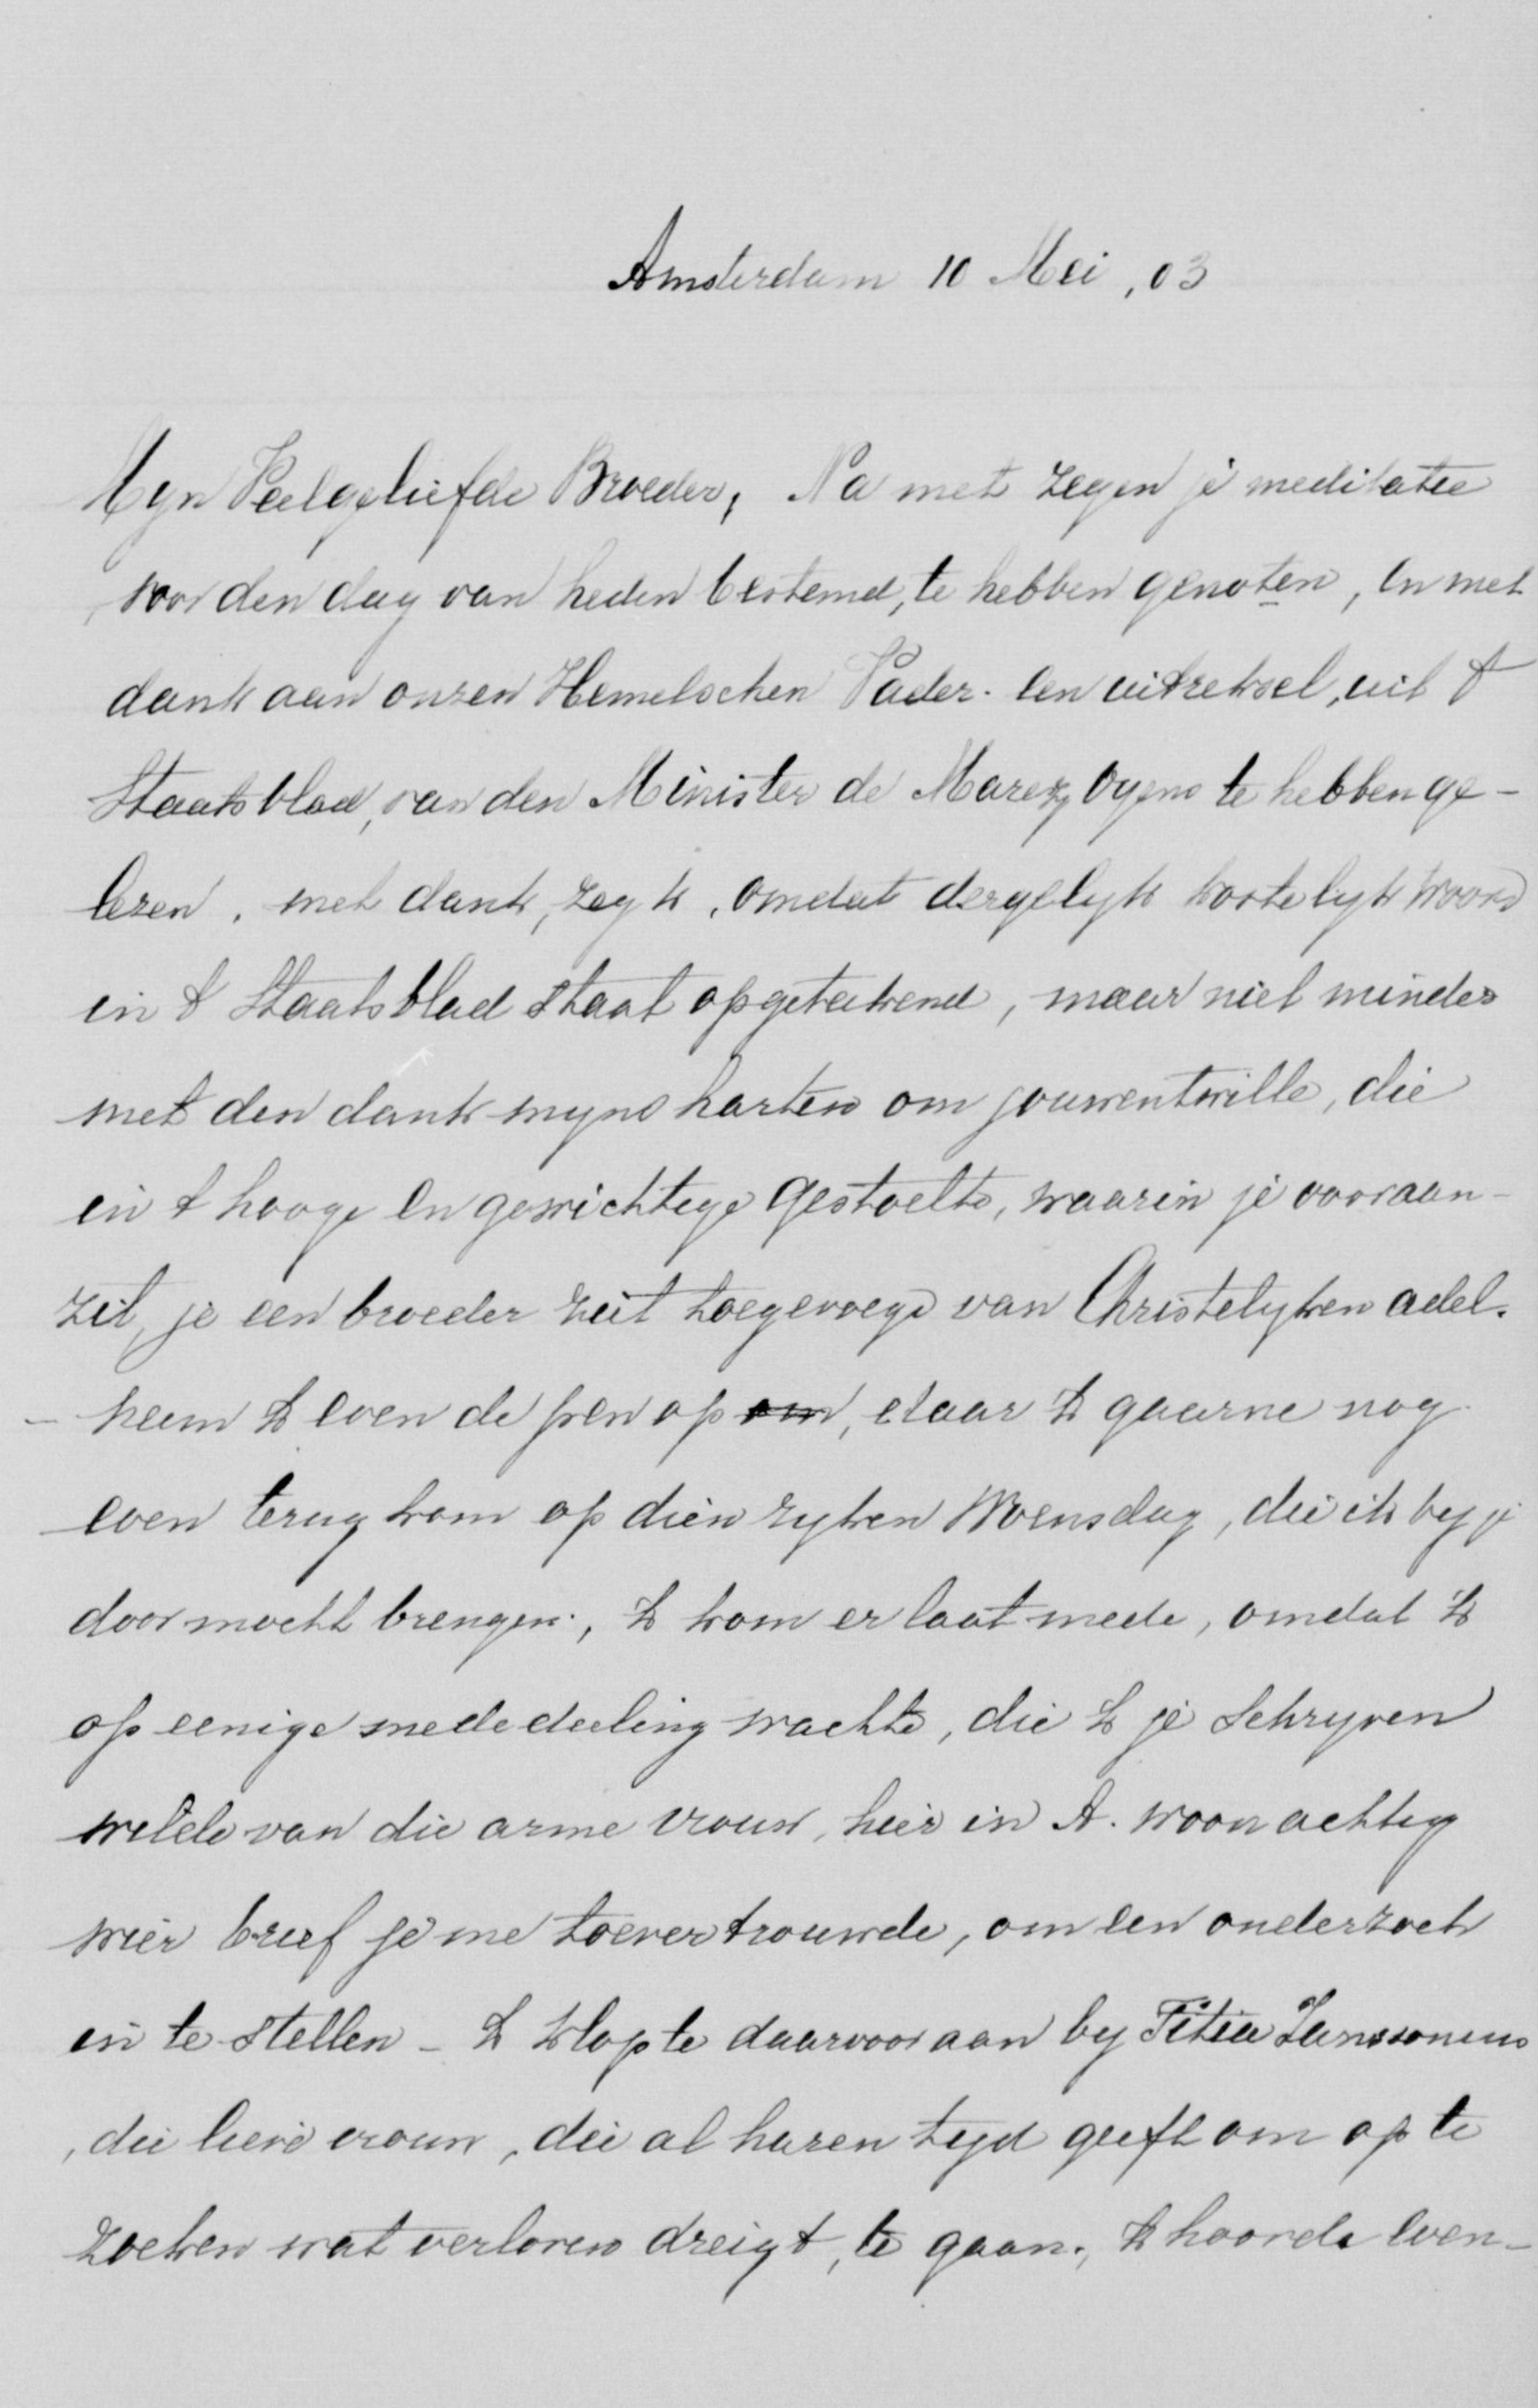 Amsterdam 10 Mei, 03
Myn Veelgeliefde Broeder, Na met zegen je meditatie
voor den dag van heden bestemd, te hebben genoten, en met
dank aan onzen Hemelschen Vader. een uittreksel, uit 't
Staatsblad, van den Minister de Marez Oyens te hebben ge-
lezen, met dank, zeg k, omdat dergelyk kostelyk woord
in 't Staatsblad staat opgeteekend, maar niet minder
met den dank myns harten om jouwentwille, die
in 't hooge en gewichtige gestoelte, waarin je vooraan-
zit, je een broeder ziet toegevoegd van Christelyken adel.
- neem k even de pen op om, daar k gaarne nog
even terug kom op dien ryken Woensdag, die ik by je
door mocht brengen., k kom er laat mede, omdat k
op eenige mededeeling wachtte, die k je schryven
wilde van die arme vrouw, hier in A. woonachtig
wier brief je me toevertrouwde, om een onderzoek
in te stellen - k klopte daarvoor aan by Titia Janssonius
, die lieve vrouw, die al haren tyd geeft om op te
zoeken wat verloren dreigt, te gaan., k hoorde even-